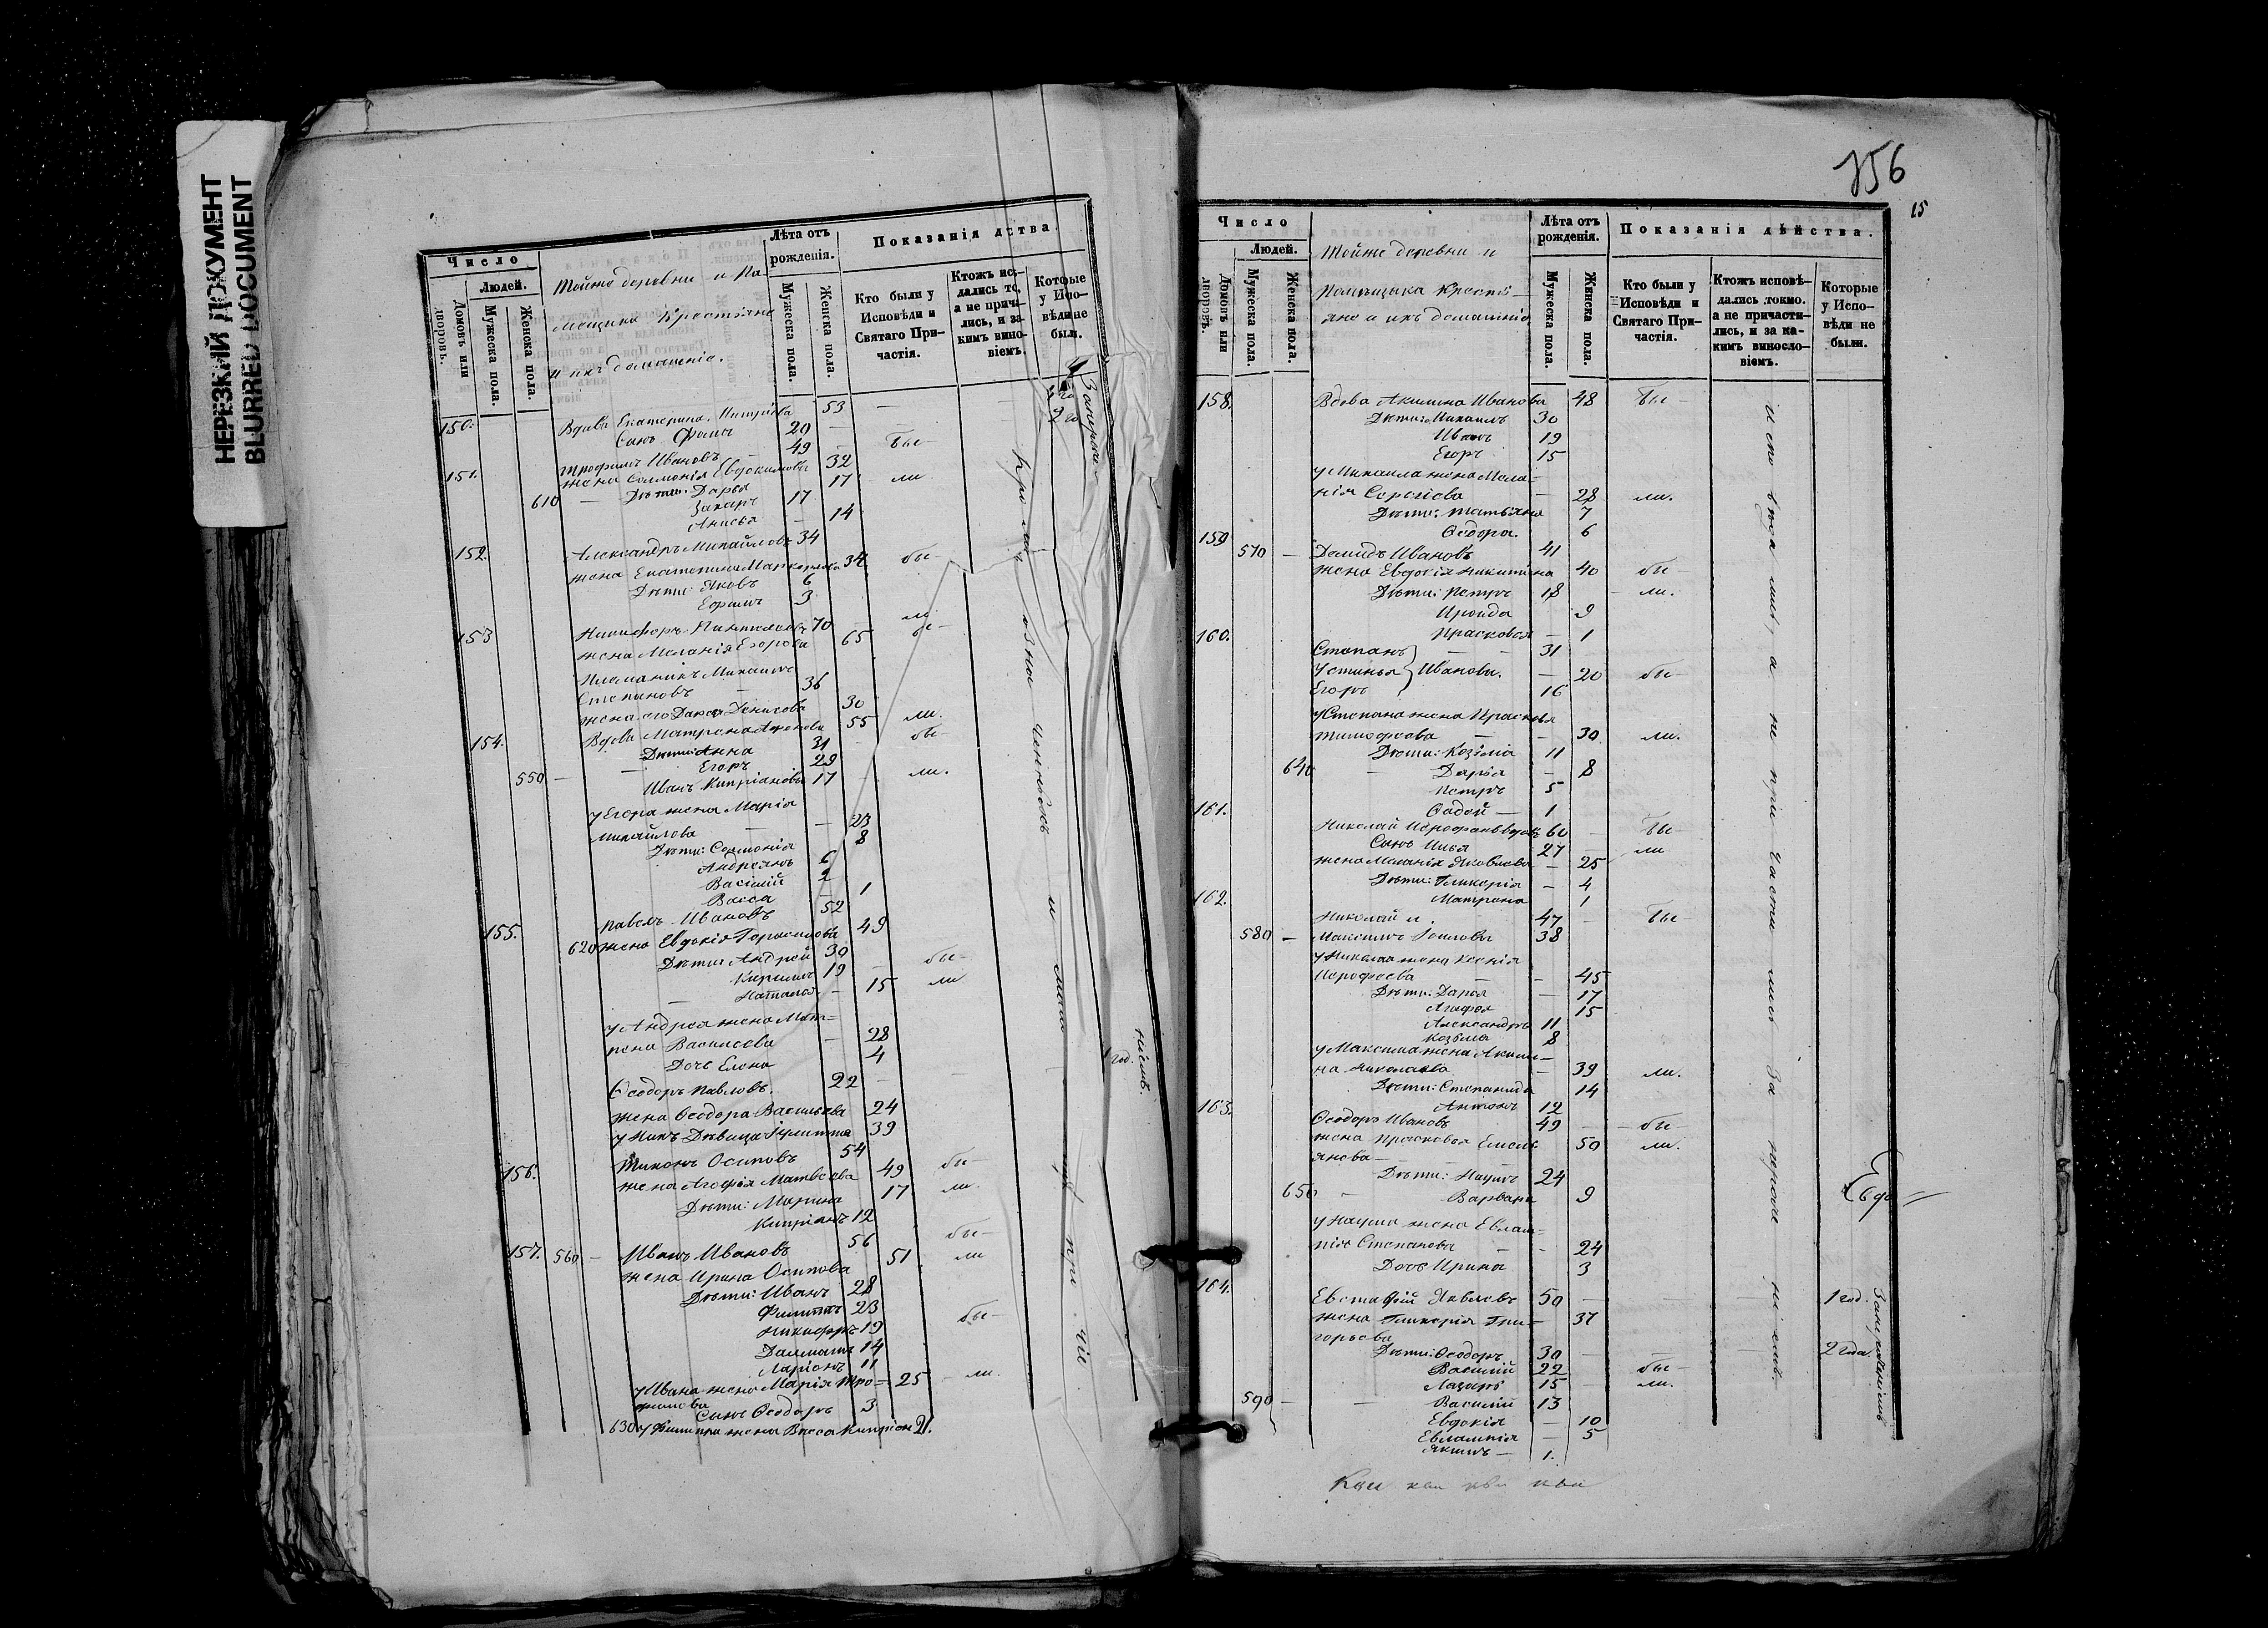 НЕРЕЗКИЙ ДОКУМЕНТ
BLURRED DOCUMENT
Число
Людей.
Домовъ или дворовъ.
Мужеска пола.
Женска пола.
Тойже деревни и По-
мещика Крестьяне
и ихъ домашніе.
Лѣта отъ рожденія.
Мужеска пола.
Женска пола.
Показанія дства.
Кто были у Исповѣди и Святаго При-частія.
Которые у Испо-вѣди не были.
150. Вдова Екатерина 53
Сынъ 20
151. Трофимъ Ивановъ 49 бы-
жена Соломонія Евдокимова 32
610 Дѣти: Дарья 17 ли
Захаръ 17
Анисья 14
152. Александръ Михайловъ 34
жена Екатерина 34 бы-
Дѣти: Яковъ 6
Ефимъ 3
ли
153 Никифоръ 70 бы-
жена Меланія Егорова 65
Племянникъ Михаилъ
Степановъ 36
жена его Дарья Денисова 30
154. Вдова Матрена 55 ли.
Дѣти: Анна 31 бы-
Егоръ 29
550 Иванъ Кипріановъ 17 ли.
у Егора жена Марія
Михайлова 23
Дѣти: Соломонія 8
Андреянъ 6
Василій 2
Васса 1
155. Павелъ Ивановъ 52
620 жена Евдокія Герасимова 49
Дѣти: Андрей 30 бы-
Кирилъ 19
Наталья 15 ли
у Андрея жена Мат-
рена Васильева 28
Дочь Елена 4
Ѳеодоръ Павловъ. 22 1 год.
жена Ѳеодора Васильева 24
у нихъ Дѣвица Іулитта 39
156. Тихонъ Осиповъ 54
жена Агафія Матвѣева 49 бы-
Дѣти: Марина 17 ли.
Кипріанъ 12
157. 560 Иванъ Ивановъ 56 бы-
жена Ирина Осипова 51 ли
Дѣти: Иванъ 28
Филиппъ 23
Никифоръ 19 бы-
Далматъ 14
Ларіонъ 11
у Ивана жена Марія Тро- 25 ли.
фимова
Сынъ Ѳеодоръ 3
630 у Филиппа жена Васса Кипріан 21.
156
15
Число
Людей.
Домовъ или дворовъ.
Мужеска пола.
Женска пола.
Тойже деревни и
Помѣщика Кресть-
яне и ихъ домашніе
Лѣта отъ рожденія.
Мужеска пола.
Женска пола.
Показанія дѣйства.
Кто были у Исповѣди и Святаго При-частія.
Ктожъ исповѣ-дались токмо, а не причасти-лись, и за ка-кимъ винословіемъ.
Которые у Испо-вѣди не были.
158. Вдова Акилина Иванова 48 бы-
Дѣти: Михаилъ 30
Иванъ 19
Егоръ 15
у Михаила жена Мела-
нія Сергіева 28 ли.
Дѣти: Татьяна 7
Ѳеодора. 6
159 570 Демидъ Ивановъ 41
жена Евдокія Никитина 40 бы-
Дѣти: Петръ 18 ли.
Ираида 9
Прасковья 1
160. Степанъ 31
Устинья Ивановы. 20 бы-
Егоръ 16
у Степана жена Прасковья
Тимофеева 30 ли.
Дѣти: Козьма 11
640 Дарья 8
Петръ 5
Ѳадей 1
161. Николай 60 бы-
Сынъ Илья 27 ли
жена Меланія Яковлева 25
Дѣти: Гликерія 4
Матрона 1
162. Николай и 47 бы-
580 Максимъ 38
у Николая жена Ксенія
Иерофеева 45
Дѣти: Дарья 17
Агафья 15
Александръ 11
Козьма 8
у Максима жена Акили-
на Николаева 39 ли.
Дѣти: Степанида 14
Антонъ 12
163. Ѳеодоръ Ивановъ 49 бы-
жена Прасковья Емель 50 ли.
янова
Дѣти: Наумъ 24
650 Варвара 9
у Наума жена Евлам-
пія Степанова 24
Дочь Ирина 3
164. Евстафій Яковлевъ 50 1 год.
жена Гликерія Гри- 37
горьева
Дѣти: Ѳеодоръ 30 2 года.
Василій 22 бы-
Лазарь 15 ли.
590 Василій 13
Евдокія 10
Евлампія 5
Якимъ 1.